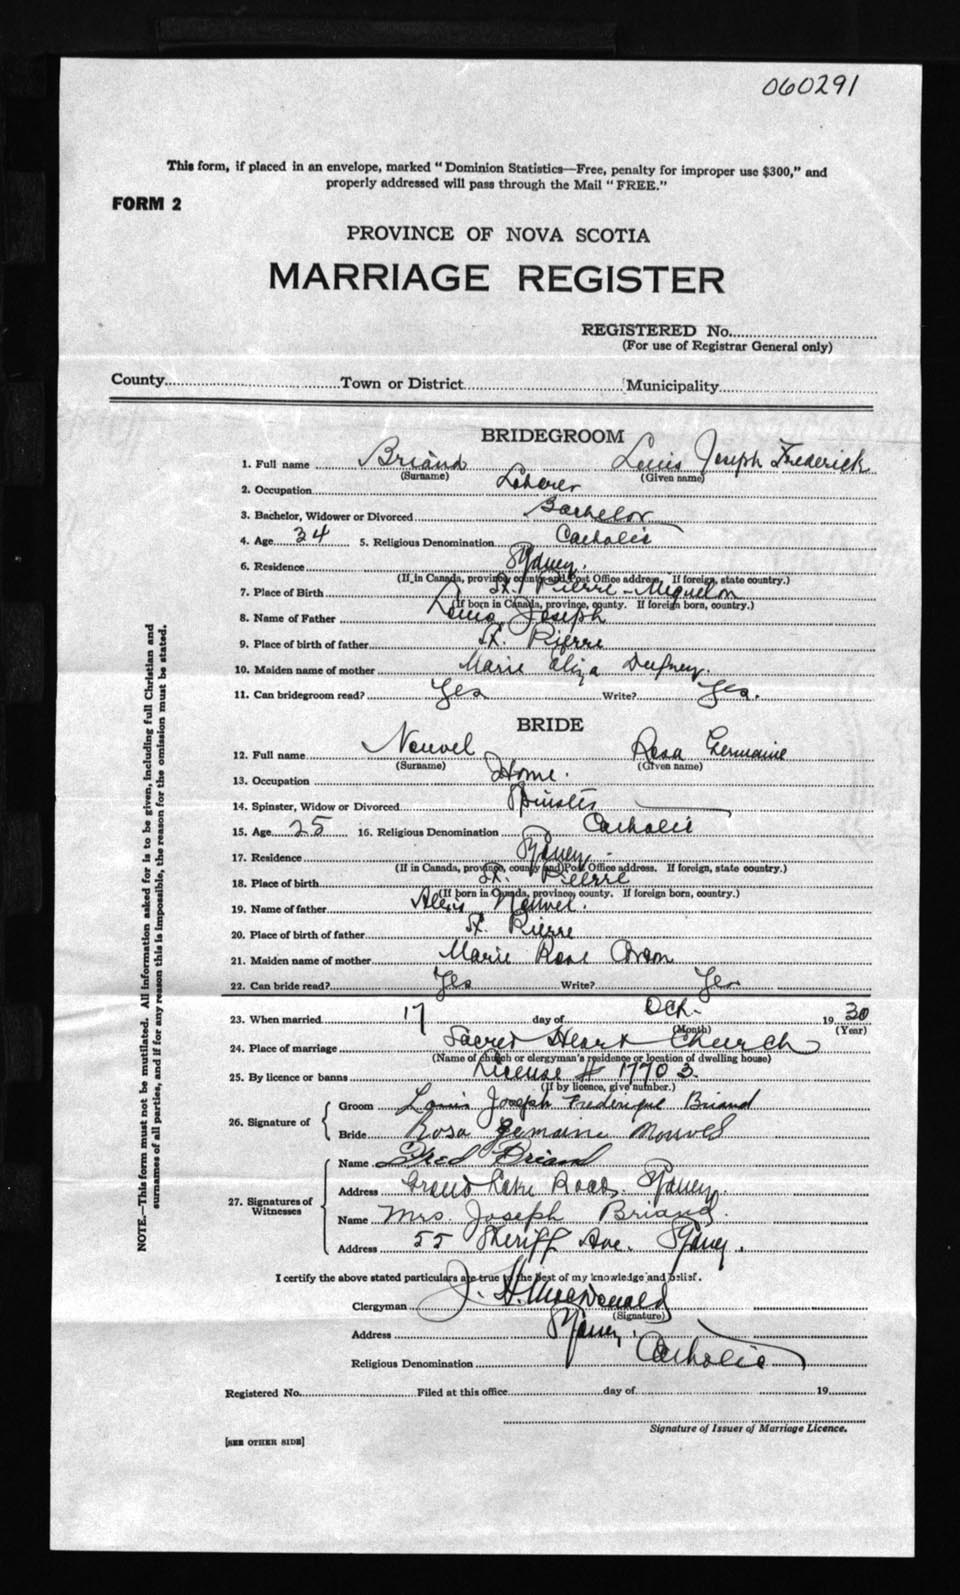 060291
This form, if placed in an envelope, marked "Dominion Statistics—Free, penalty for improper use $300," and
properly addressed will pass through the Mail "FREE."
FORM 2
PROVINCE OF NOVA SCOTIA
MARRIAGE REGISTER
REGISTERED No.
(For use of Registrar General only)
County Town or District Municipality
BRIDEGROOM
1. Full name Briand Louis Joseph Frederick
(Surname) (Given name)
2. Occupation Laborer
3. Bachelor, Widower or Divorced Bachelor
4. Age 34 5. Religious Denomination Catholic
6. Residence Sydney.
(If in Canada, province, county and Post Office address. If foreign, state country.)
7. Place of Birth St. Pierre - Miquelon
(If born in Canada, province, county. If foreign born, country.)
8. Name of Father Louis Joseph
9. Place of birth of father St. Pierre
10. Maiden name of mother Marie Eliza
11. Can bridegroom read? Yes Write? Yes.
BRIDE
12. Full name Nouvel Rosa Germaine
(Surname) (Given name)
13. Occupation Home.
14. Spinster, Widow or Divorced Spinster
15. Age 25 16. Religious Denomination Catholic
17. Residence Sydney
(If in Canada, province, county and Post Office address. If foreign, state country.)
18. Place of birth St. Pierre
(If born in Canada, province, county. If foreign born, country.)
19. Name of father Alexis Nouvel.
20. Place of birth of father St. Pierre
21. Maiden name of mother Marie Rose
22. Can bride read? Yes Write? Yes
23. When married 17 day of Oct. 1930
(Month) (Year)
24. Place of marriage Sacred Heart Church
(Name of church or clergyman's residence or location of dwelling house)
25. By licence or banns License # 17703.
(If by licence, give number.)
26. Signature of
Groom Louis Joseph Frederique Briand
Bride Rosa Gemaine Nouvel
27. Signatures of Witnesses
Name Fred Briand
Address Grand Lake Road. Sydney.
Name Mrs. Joseph Briand.
Address 55 Sheriff Ave. Sydney.
I certify the above stated particulars are true to the best of my knowledge and belief.
Clergyman J. H. MacDonald
(Signature)
Address Sydney.
Religious Denomination Catholic
Registered No. Filed at this office day of 19
Signature of Issuer of Marriage Licence.
[SEE OTHER SIDE]
NOTE.—This form must not be mutilated. All information asked for is to be given, including full Christian and
surnames of all parties, and if for any reason this is impossible, the reason for the omission must be stated.